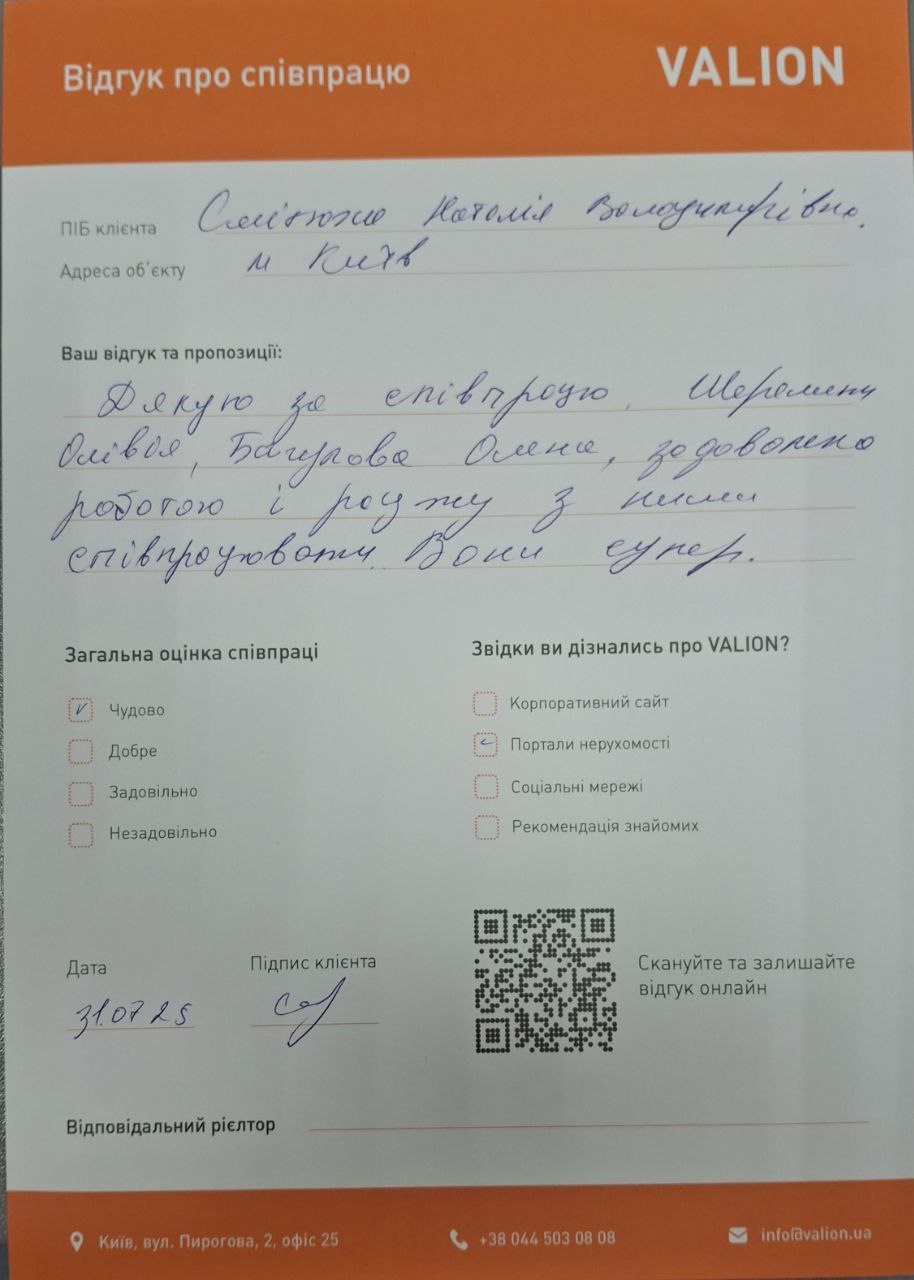 Відгук про співпрацю
VALION
ПІБ клієнта Наталія Володимирівна.
Адреса об'єкту м Київ
Ваш відгук та пропозиції:
Дякую за співпрацю,
Олівія, Олена, задоволена
роботою і раджу з ними
співпрацювати. Вони супер.
Загальна оцінка співпраці
Чудово
Добре
Задовільно
Незадовільно
Звідки ви дізнались про VALION?
Корпоративний сайт
Портали нерухомості
Соціальні мережі
Рекомендація знайомих
Дата 31.07.25
Підпис клієнта
Скануйте та залишайте
відгук онлайн
Відповідальний рієлтор
Київ, вул. Пирогова, 2, офіс 25
+38 044 503 08 08
info@valion.ua